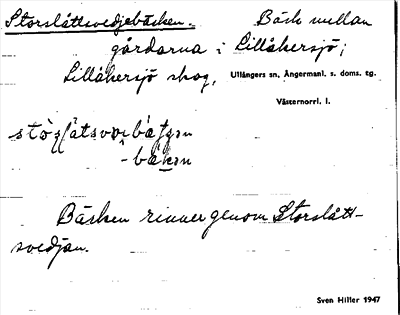 Storslåttsvedjebäcken. Bäck mellan
gårdarna i Lillåkersjö;
Lillåkersjö skog, Ullångers sn, Ångermanl. s. doms. tg.
Västernorrl. l.
Bäcken rinner genom Storslått-
svedjan.
Sven Hiller 1947